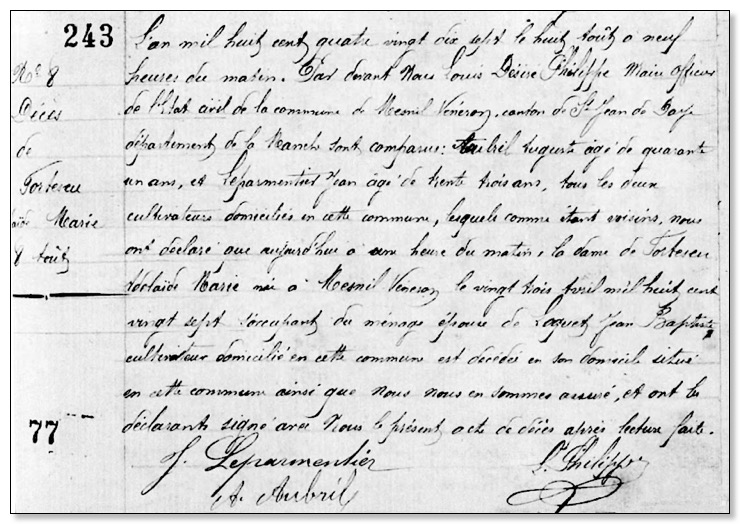 243
L'an mil huit cent quatre vingt dix sept le huit Août à neuf
heures du matin. Par devant Nous Louis Désiré Philippe Maire officier
de l'Etat civil de la commune de Mesnil Véneron, canton de St Jean de Daye
département de la Manche sont comparus: Aubril Auguste âgé de quarante
un ans, et Leparmentier Jean âgé de trente trois ans, tous les deux
cultivateurs domiciliés en cette commune, lesquels comme étant voisins, nous
ont déclaré que aujourd'hui à une heure du matin, la dame de Forteseu
Adelaïde Marie née à Mesnil Véneron le vingt trois Avril mil huit cent
vingt sept s'occupant du ménage épouse de Loquet Jean Baptiste
cultivateur domicilié en cette commune est décédée en son domicile situé
en cette commune ainsi que nous nous en sommes assuré, et ont les
déclarants signé avec Nous le présent acte de décès après lecture faite.
J. Leparmentier
L. Philippe
A. Aubril
No 8
Décès
de
Forteseu
aïde Marie
8 Août
77